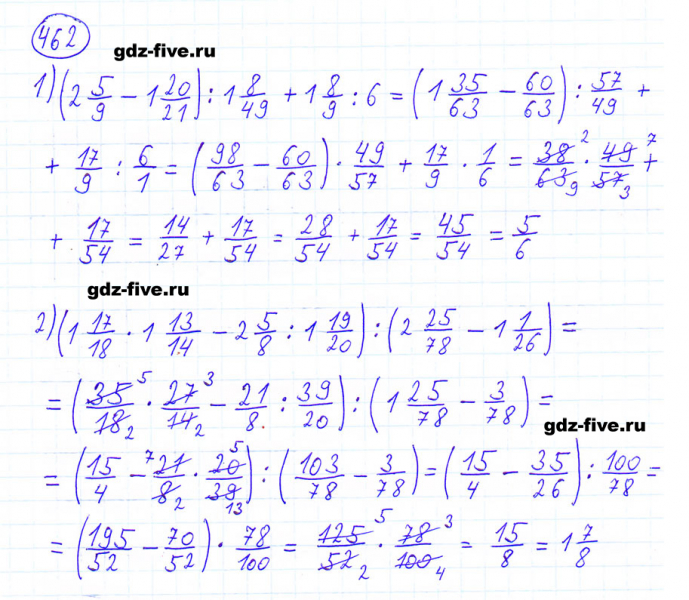 462
gdz-five.ru
1) (2 5/9 − 1 20/21) : 1 8/49 + 1 8/9 : 6 = (1 35/63 − 60/63) : 57/49 +
+ 17/9 : 6/1 = (98/63 − 60/63) · 49/57 + 17/9 · 1/6 = 38/63 2 9 · 49/57 7 3 +
+ 17/54 = 14/27 + 17/54 = 28/54 + 17/54 = 45/54 = 5/6
gdz-five.ru
2) (1 17/18 · 1 13/14 − 2 5/8 : 1 19/20) : (2 25/78 − 1 1/26) =
= (35/18 5 2 · 27/14 3 2 − 21/8 : 39/20) : (1 25/78 − 3/78) =
gdz-five.ru
= (15/4 − 7 21/8 2 · 20/39 5 13) : (103/78 − 3/78) = (15/4 − 35/26) : 100/78 =
= (195/52 − 70/52) · 78/100 = 125/52 5 2 · 78/100 3 4 = 15/8 = 1 7/8